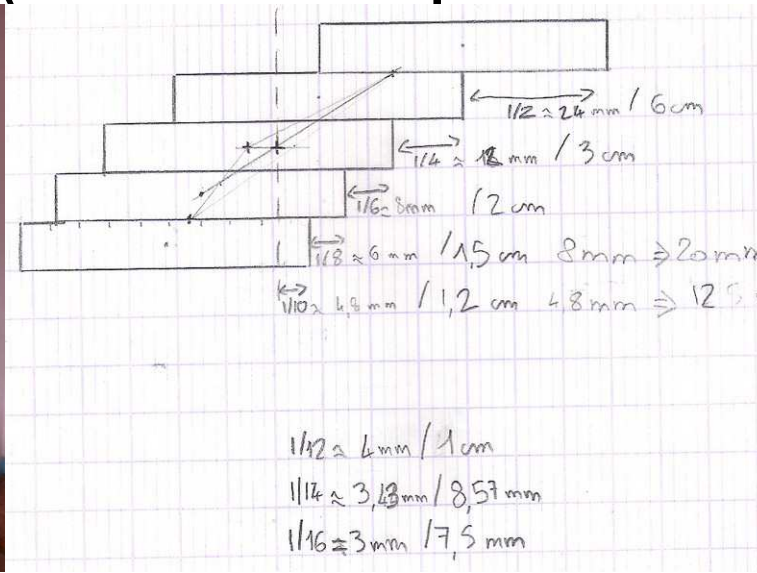 1/2 ≈ 24 mm / 6 cm
1/4 ≈ 12 mm / 3 cm
1/6 ≈ 8mm / 2 cm
1/8 ≈ 6 mm / 1,5 cm 8mm ⇒ 20 mm
1/10 ≈ 4,8 mm / 1,2 cm 4,8 mm ⇒ 12
1/12 ≈ 4mm / 1 cm
1/14 ≈ 3,43 mm / 8,57 mm
1/16 ≈ 3mm / 7,5 mm